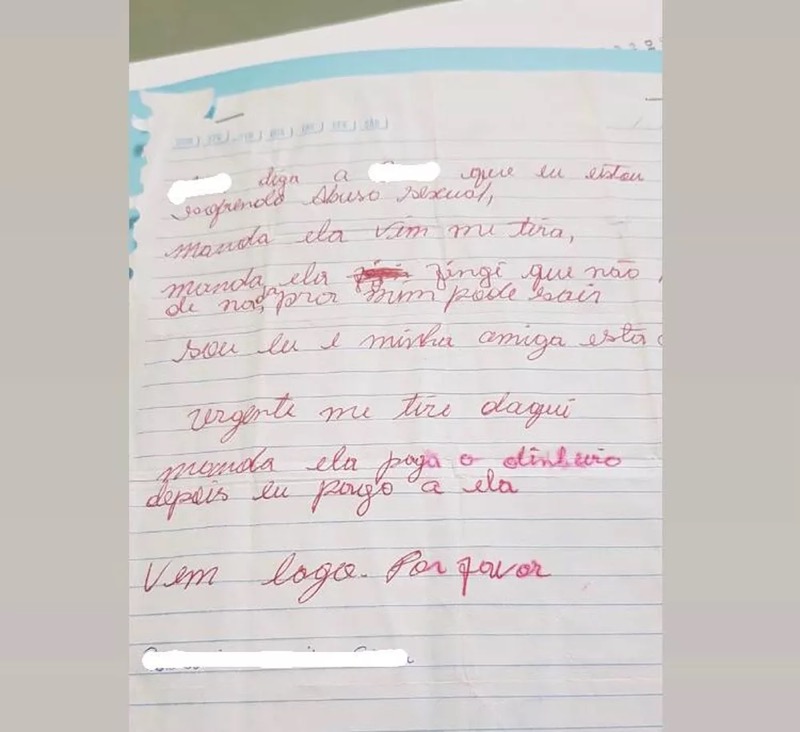 diga a que eu estou
sofrendo Abuso sexual,
manda ela vim me tira,
manda ela fingi que não
de nada, pra mim pode sair
sou eu e minha amiga esta
urgente me tire daqui
manda ela paga o dinheiro
depois eu pago a ela
Vem logo. Por favor